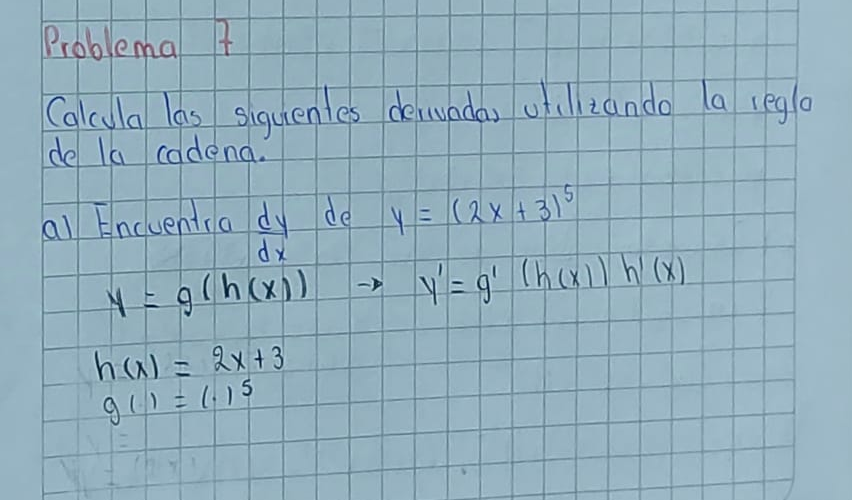 Problema 7
Calcula las siguientes derivadas utilizando la regla
de la cadena.
a) Encuentra dy/dx de y = (2x + 3)^5
y = g(h(x)) → y' = g' (h(x)) h'(x)
h(x) = 2x + 3
g(·) = (·)^5